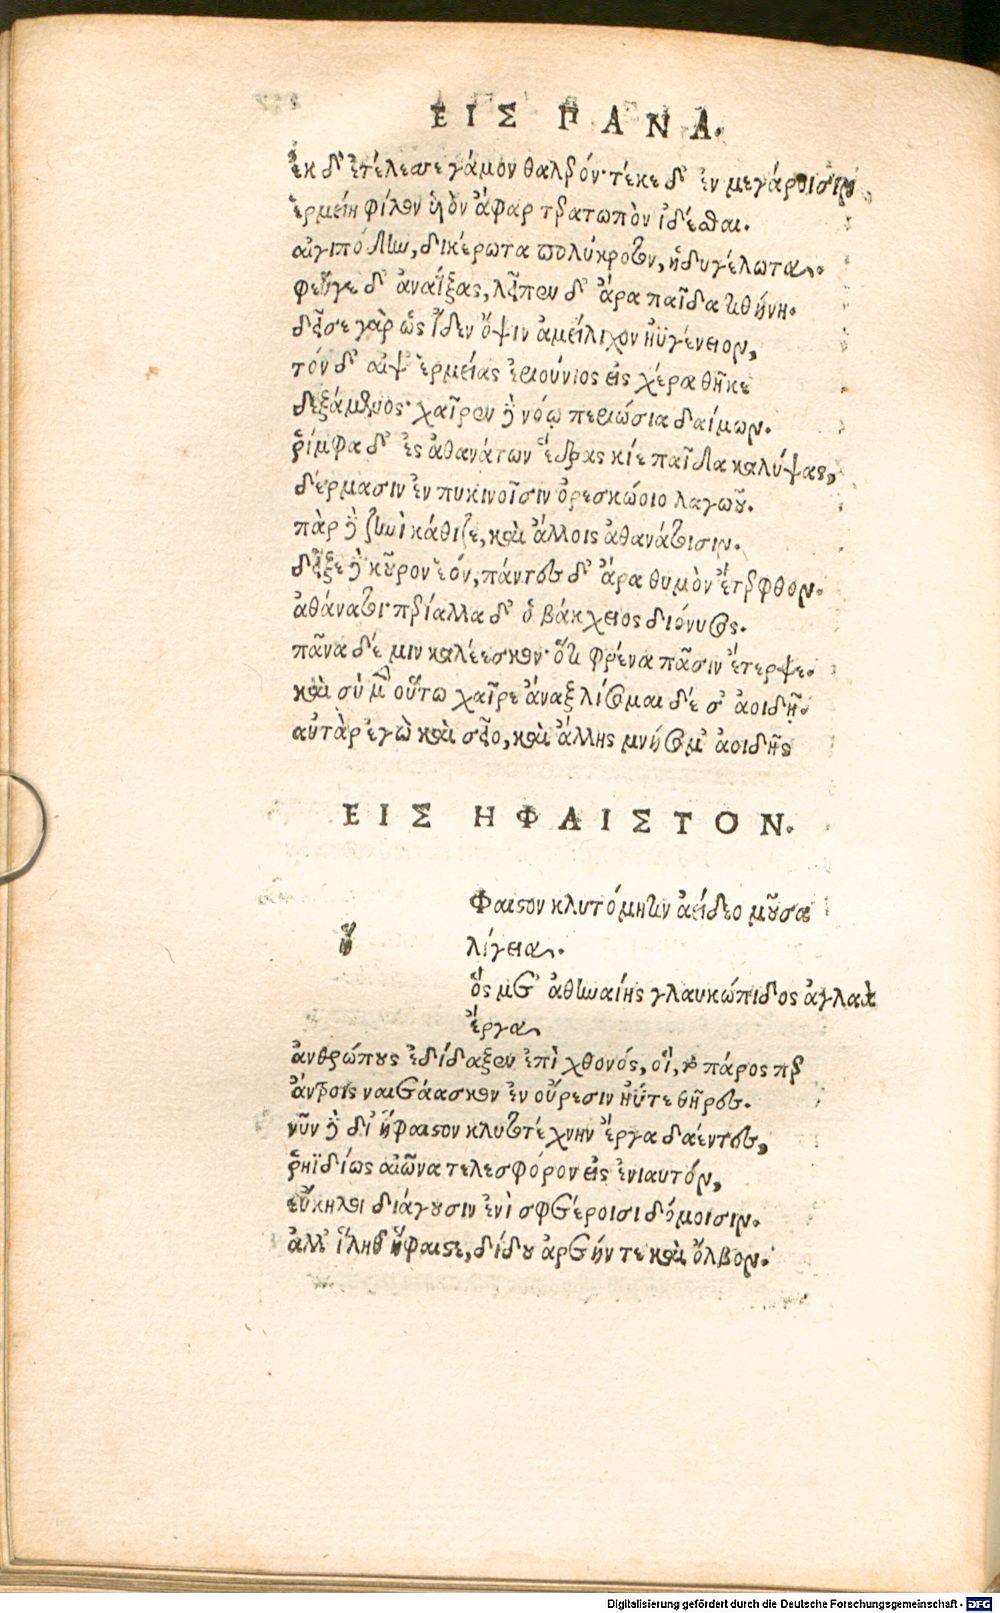 ΕΙΣ ΠΑΝΑ.
ἐκ δ' ἐτέλεσσε γάμον θαλερόν· τέκε δ' ἐν μεγάροισιν
ἑρμείῃ φίλον υἱὸν ἄφαρ τερατωπὸν ἰδέσθαι.
αἰγιπόδην, δικέρωτα πολύκροτον, ἡδυγέλωτα.
φεῦγε δ' ἀναΐξας, λεῖπεν δ' ἄρα παῖδα τιθήνη.
δεῖσε γὰρ ὡς ἴδεν ὄψιν ἀμείλιχον ἠϋγένειον,
τόν δ' αἶψ' ἑρμείας ἐριούνιος εἰς χέρα θῆκε
δεξάμενος· χαῖρεν δὲ νόῳ περιώσια δαίμων.
ῥίμφα δ' ἐς ἀθανάτων ἕδρας κίε παῖδα καλύψας,
δέρμασιν ἐν πυκινοῖσιν ὀρεσκώοιο λαγωοῦ.
πὰρ δὲ ζηνὶ κάθιζε, καὶ ἄλλοις ἀθανάτοισιν.
δεῖξε δὲ κοῦρον ἑόν, πάντες δ' ἄρα θυμὸν ἔτερφθον.
ἀθάνατοι· περίαλλα δ' ὁ βάκχειος διόνυσος.
πᾶνα δέ μιν καλέεσκον· ὅτι φρένα πᾶσιν ἔτερψε.
καὶ σὺ μὲν οὕτω χαῖρε ἄναξ λίσομαι δέ σ' ἀοιδῇ.
αὐτὰρ ἐγὼ καὶ σεῖο, καὶ ἄλλης μνήσομ' ἀοιδῆς
ΕΙΣ ΗΦΑΙΣΤΟΝ.
ἥ
Φαιστον κλυτόμητιν ἀείδεο μοῦσα
λίγεια.
ὃς μετ' ἀθηναίης γλαυκώπιδος ἀγλαὰ
ἔργα
ἀνθρώπους ἐδίδαξεν ἐπὶ χθονός, οἳ, τὸ πάρος περ
ἄντροις ναιετάασκον ἐν οὔρεσιν ἠΰτε θῆρες.
νῦν δὲ δι' ἥφαιστον κλυτοτέχνην ἔργα δαέντες,
ῥηϊδίως αἰῶνα τελεσφόρον εἰς ἐνιαυτόν,
εὔκηλοι διάγουσιν ἐνὶ σφετέροισι δόμοισιν.
ἀλλ' ἵληθ' ἥφαιστε, δίδου ἀρετήν τε καὶ ὄλβον.
Digitalisierung gefördert durch die Deutsche Forschungsgemeinschaft - DFG